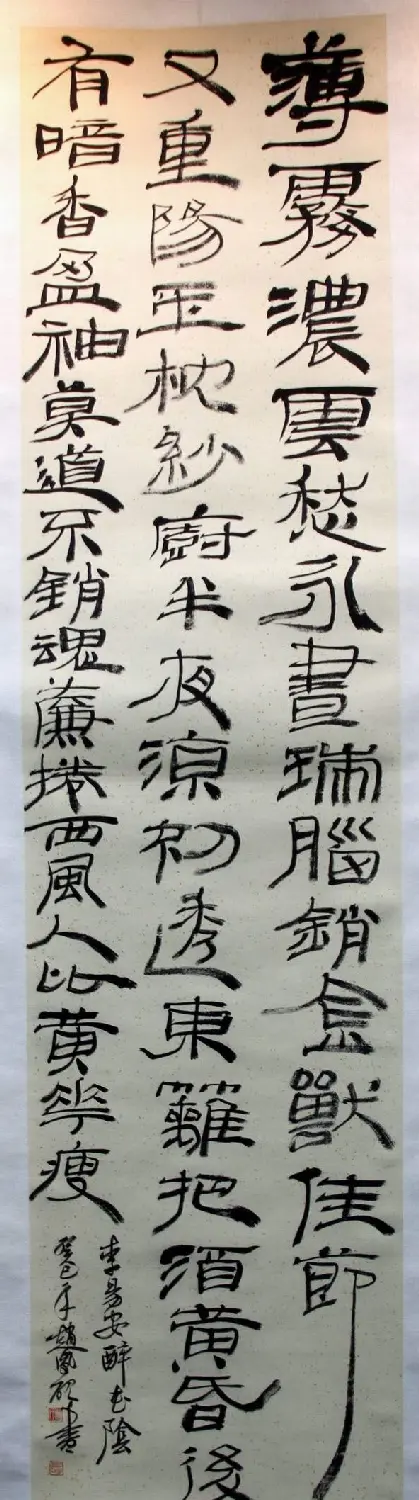 薄霧濃雲愁永晝瑞腦銷金獸佳節
又重陽玉枕紗廚半夜涼初透東籬把酒黃昏後
有暗香盈袖莫道不銷魂簾捲西風人比黃花瘦
李易安醉花陰
癸巳年趙